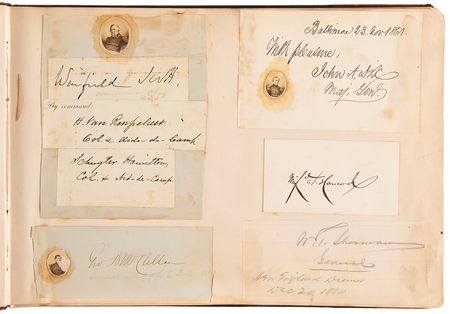 Winfield Scott.
By command:
H. Van Rensselaer
Col. & Aide-de-Camp
Schuyler Hamilton,
Col. & Aid-de-Camp.
Geo. B. McClellan
Baltimore 23. Nov 1861.
With pleasure,
John A. Dix
Maj. Genl.
Winf'd S. Hancock
W. T. Sherman
General
New England Dinner
Dec 20,